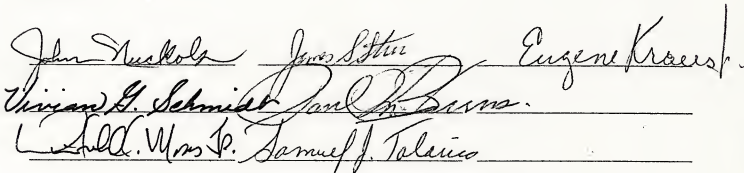 John Nuckols James Eugene Kraus Jr.
Vivian G. Schmidt Paul M. Burns.
Moss Jr. Samuel J. Talarico